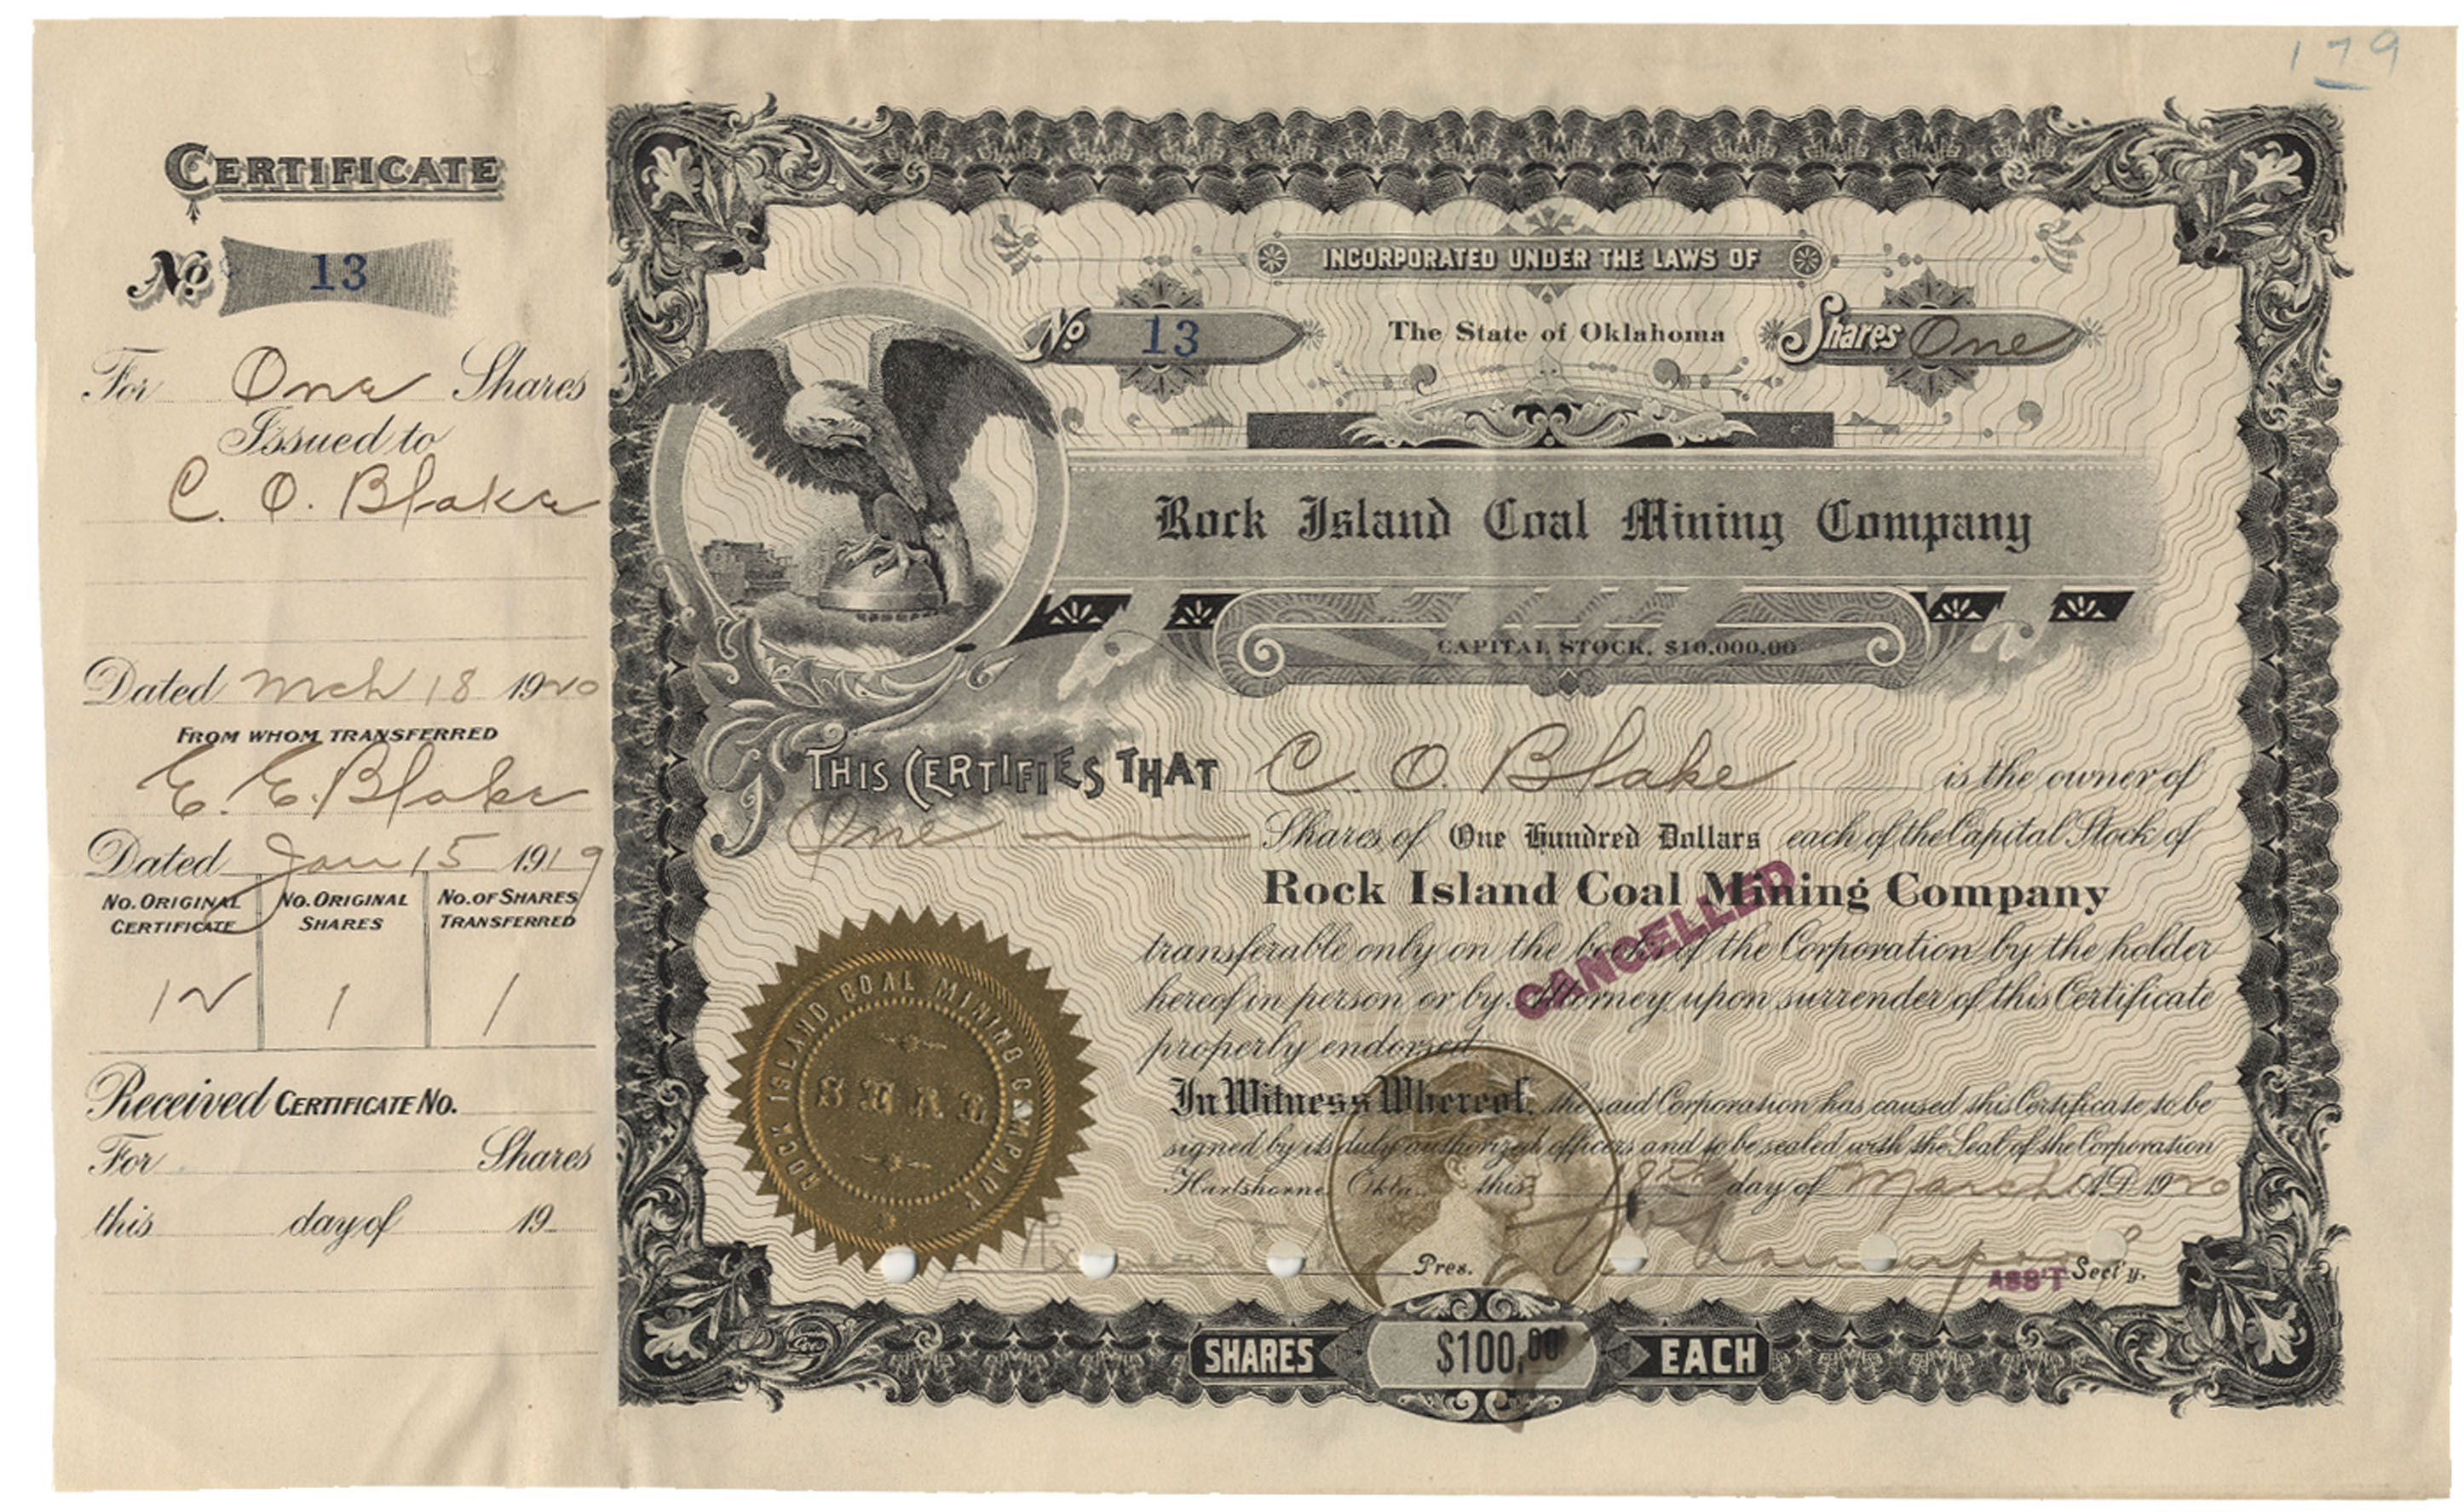 179
CERTIFICATE
No 13
For One Shares
Issued to
C. O. Blake
Dated Mch 18 1920
FROM WHOM TRANSFERRED
E. E. Blake
Dated Jan 15 1919
NO. ORIGINAL CERTIFICATE NO. ORIGINAL SHARES NO. OF SHARES TRANSFERRED
12 1 1
Received CERTIFICATE NO.
For Shares
this day of 19
INCORPORATED UNDER THE LAWS OF
No 13 The State of Oklahoma Shares One
Rock Island Coal Mining Company
CAPITAL STOCK, $10,000.00
THIS CERTIFIES THAT C. O. Blake is the owner of
One Shares of One Hundred Dollars each of the Capital Stock of
Rock Island Coal Mining Company
transferable only on the books of the Corporation by the holder
hereof in person or by Attorney upon surrender of this Certificate
properly endorsed
CANCELLED
In Witness Whereof, the said Corporation has caused this Certificate to be
signed by its duly authorized officers and to be sealed with the Seal of the Corporation
Hartshorne, Okla. this 18th day of March A.D. 1920
Pres. ASS'T Sect'y.
ROCK ISLAND COAL MINING COMPANY
SEAL
SHARES $100,00 EACH